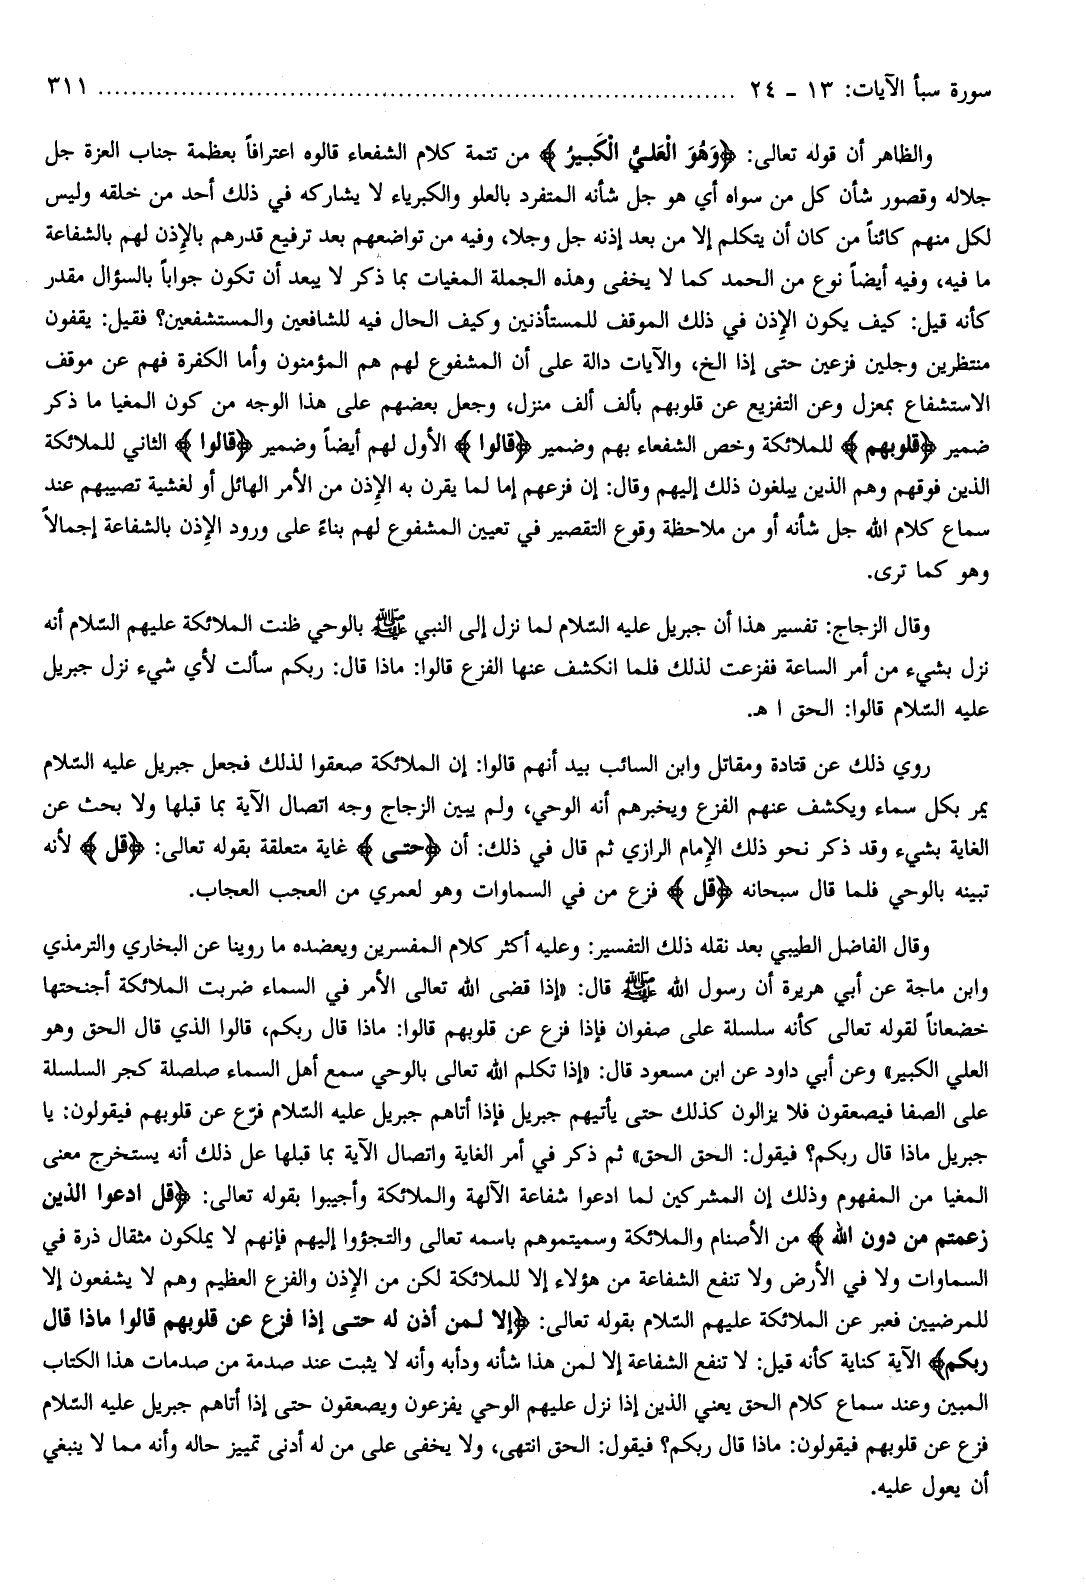 سورة سبأ الآيات: ١٣ - ٢٤ ........................................................................ ٣١١
والظاهر أن قوله تعالى: ﴿وَهُوَ الْعَلـيُّ الْكَبـيرُ﴾ من تتمة كلام الشفعاء قالوه اعترافاً بعظمة جناب العزة جل
جلاله وقصور شأن كل من سواه أي هو جل شأنه المتفرد بالعلو والكبرياء لا يشاركه في ذلك أحد من خلقه وليس
لكل منهم كائناً من كان أن يتكلم إلا من بعد إذنه جل وجلا، وفيه من تواضعهم بعد ترفيع قدرهم بالإذن لهم بالشفاعة
ما فيه، وفيه أيضاً نوع من الحمد كما لا يخفى وهذه الجملة المغيات بما ذكر لا يبعد أن تكون جواباً بالسؤال مقدر
كأنه قيل: كيف يكون الإذن في ذلك الموقف للمستأذنين وكيف الحال فيه للشافعين والمستشفعين؟ فقيل: يقفون
منتظرين وجلين فزعين حتى إذا الخ، والآيات دالة على أن المشفوع لهم هم المؤمنون وأما الكفرة فهم عن موقف
الاستشفاع بمعزل وعن التفزيع عن قلوبهم بألف ألف منزل، وجعل بعضهم على هذا الوجه من كون المغيا ما ذكر
ضمير ﴿قلوبهم﴾ للملائكة وخص الشفعاء بهم وضمير ﴿قالوا﴾ الأول لهم أيضاً وضمير ﴿قالوا﴾ الثاني للملائكة
الذين فوقهم وهم الذين يبلغون ذلك إليهم وقال: إن فزعهم إما لما يقرن به الإذن من الأمر الهائل أو لغشية تصيبهم عند
سماع كلام الله جل شأنه أو من ملاحظة وقوع التقصير في تعيين المشفوع لهم بناءً على ورود الإذن بالشفاعة إجمالاً
وهو كما ترى.
وقال الزجاج: تفسير هذا أن جبريل عليه السّلام لما نزل إلى النبي ﷺ بالوحي ظنت الملائكة عليهم السّلام أنه
نزل بشيء من أمر الساعة ففزعت لذلك فلما انكشف عنها الفزع قالوا: ماذا قال: ربكم سألت لأي شيء نزل جبريل
عليه السّلام قالوا: الحق ا هـ.
روي ذلك عن قتادة ومقاتل وابن السائب بيد أنهم قالوا: إن الملائكة صعقوا لذلك فجعل جبريل عليه السّلام
يمر بكل سماء ويكشف عنهم الفزع ويخبرهم أنه الوحي، ولم يبين الزجاج وجه اتصال الآية بما قبلها ولا بحث عن
الغاية بشيء وقد ذكر نحو ذلك الإمام الرازي ثم قال في ذلك: أن ﴿حتـى﴾ غاية متعلقة بقوله تعالى: ﴿قل﴾ لأنه
تبينه بالوحي فلما قال سبحانه ﴿قل﴾ فزع من في السماوات وهو لعمري من العجب العجاب.
وقال الفاضل الطيبي بعد نقله ذلك التفسير: وعليه أكثر كلام المفسرين ويعضده ما روينا عن البخاري والترمذي
وابن ماجة عن أبي هريرة أن رسول الله ﷺ قال: «إذا قضى الله تعالى الأمر في السماء ضربت الملائكة أجنحتها
خضعاناً لقوله تعالى كأنه سلسلة على صفوان فإذا فزع عن قلوبهم قالوا: ماذا قال ربكم، قالوا الذي قال الحق وهو
العلي الكبير» وعن أبي داود عن ابن مسعود قال: «إذا تكلم الله تعالى بالوحي سمع أهل السماء صلصلة كجر السلسلة
على الصفا فيصعقون فلا يزالون كذلك حتى يأتيهم جبريل فإذا أتاهم جبريل عليه السّلام فزّع عن قلوبهم فيقولون: يا
جبريل ماذا قال ربكم؟ فيقول: الحق الحق» ثم ذكر في أمر الغاية واتصال الآية بما قبلها عل ذلك أنه يستخرج معنى
المغيا من المفهوم وذلك إن المشركين لما ادعوا شفاعة الآلهة والملائكة وأجيبوا بقوله تعالى: ﴿قل ادعوا الذين
زعمتم من دون الله﴾ من الأصنام والملائكة وسميتموهم باسمه تعالى والتجؤوا إليهم فإنهم لا يملكون مثقال ذرة في
السماوات ولا في الأرض ولا تنفع الشفاعة من هؤلاء إلا للملائكة لكن من الإذن والفزع العظيم وهم لا يشفعون إلا
للمرضيين فعبر عن الملائكة عليهم السّلام بقوله تعالى: ﴿إلا لـمن أذن له حتـى إذا فزع عن قلوبهم قالوا ماذا قال
ربكم﴾ الآية كناية كأنه قيل: لا تنفع الشفاعة إلا لمن هذا شأنه ودأبه وأنه لا يثبت عند صدمة من صدمات هذا الكتاب
المبين وعند سماع كلام الحق يعني الذين إذا نزل عليهم الوحي يفزعون ويصعقون حتى إذا أتاهم جبريل عليه السّلام
فزع عن قلوبهم فيقولون: ماذا قال ربكم؟ فيقول: الحق انتهى، ولا يخفى على من له أدنى تمييز حاله وأنه مما لا ينبغي
أن يعول عليه.